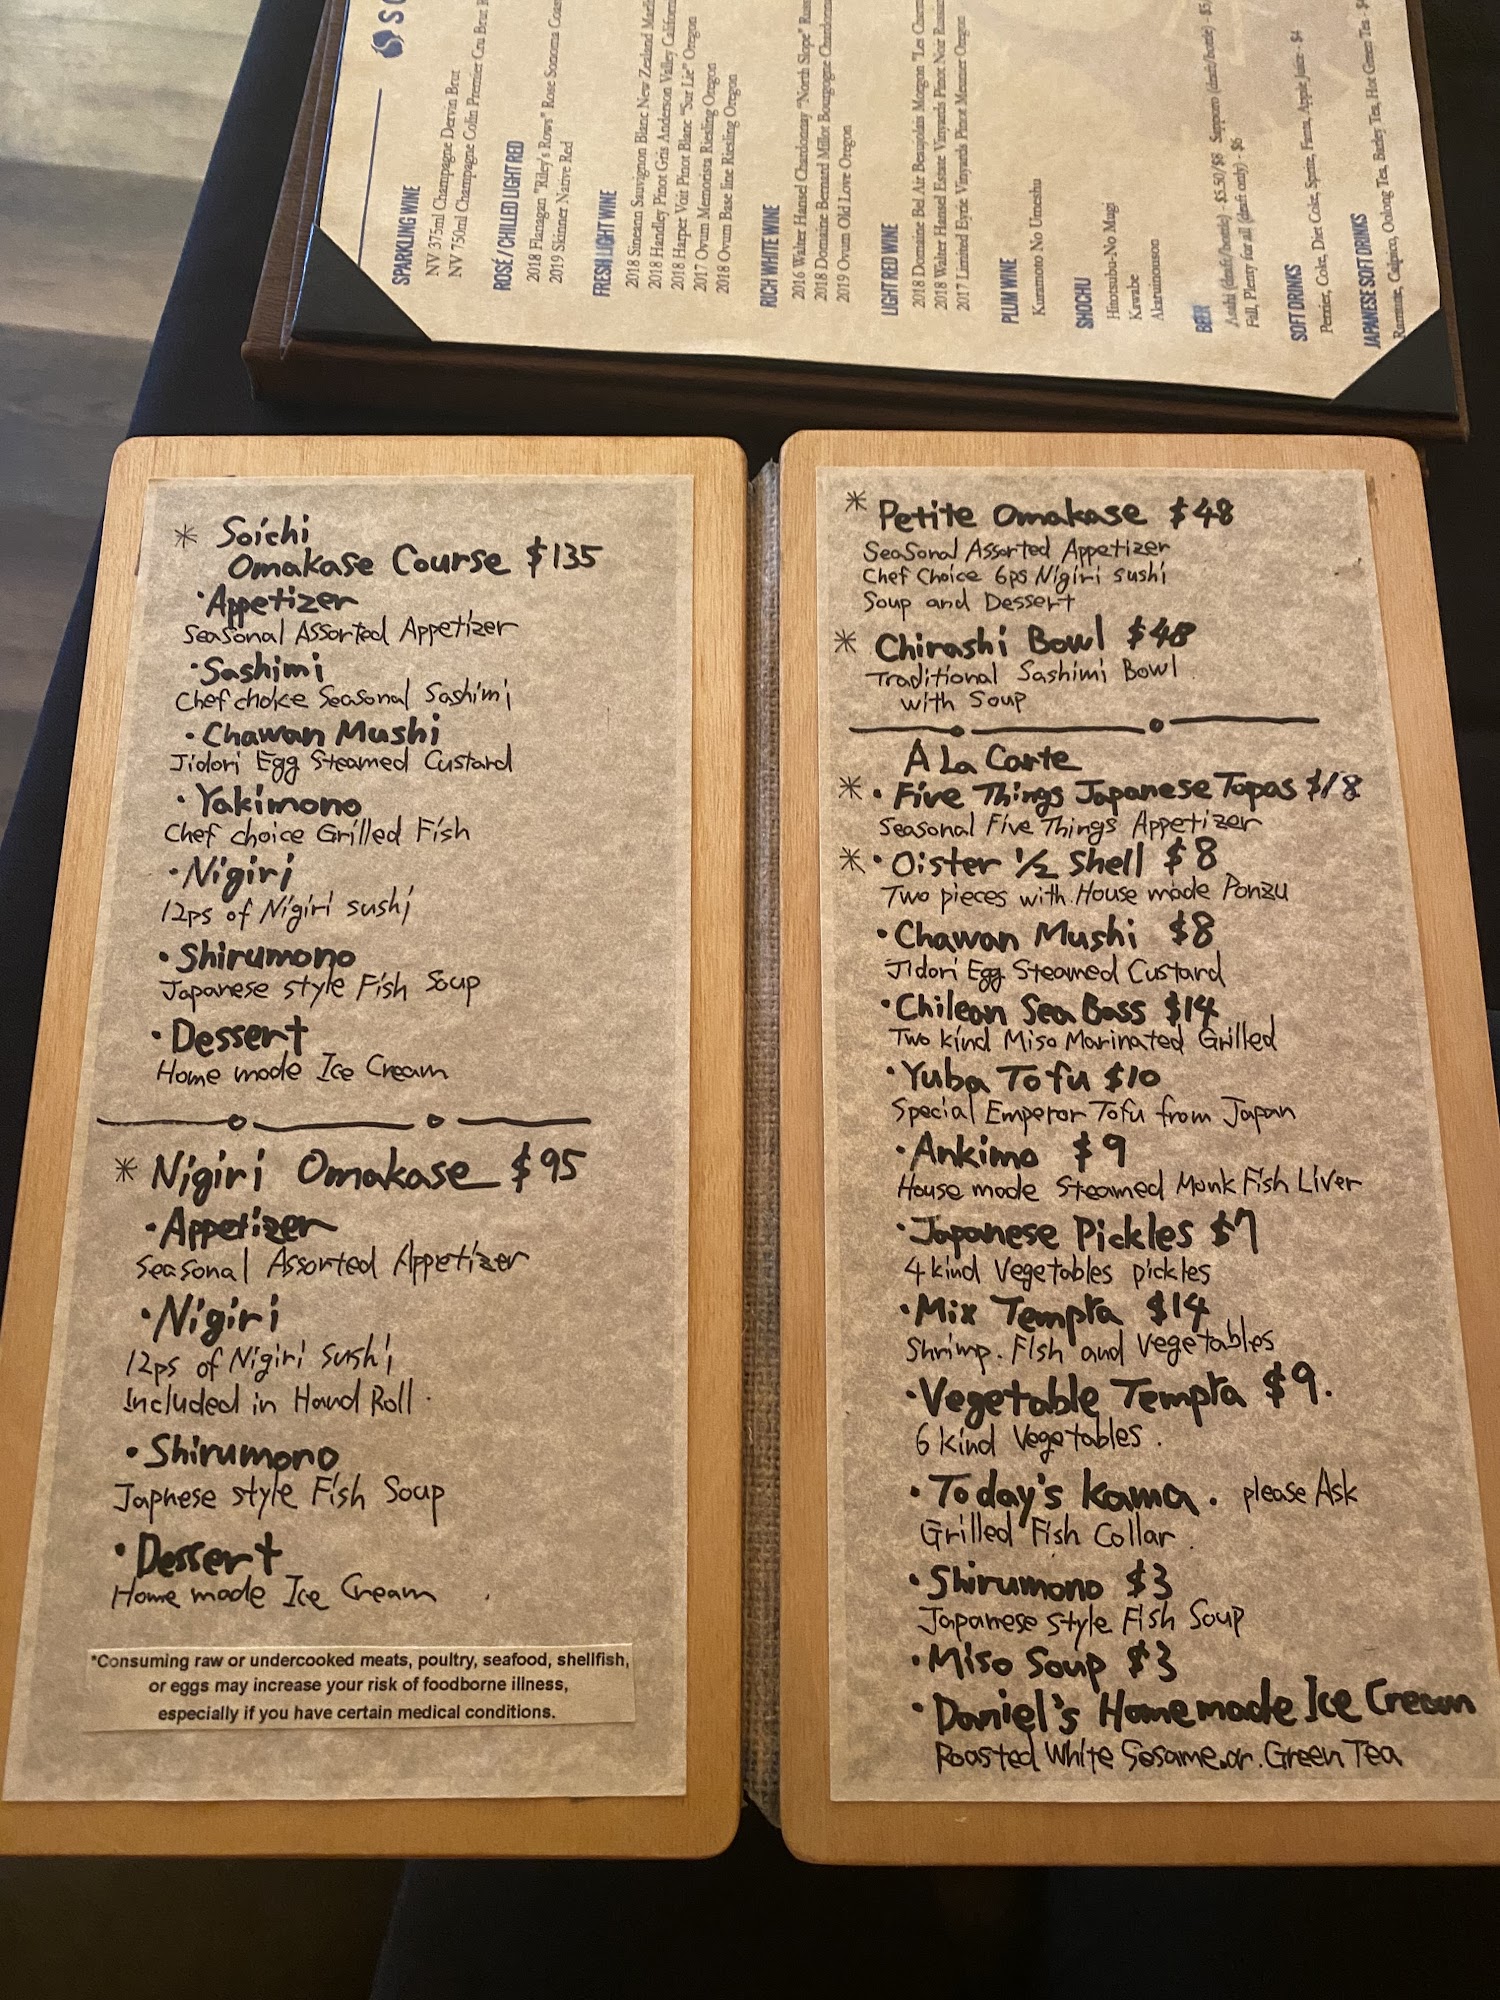 SPARKLING WINE
NV 375ml Champagne Dervin Brut
NV 750ml Champagne Colin Premier Cru Brut
ROSÉ / CHILLED LIGHT RED
2018 Flanagan "Riley's Rows" Rose Sonoma
2019 Skinner Native Red
FRESH LIGHT WINE
2018 Sineann Sauvignon Blanc New Zealand
2018 Handley Pinot Gris Anderson Valley
2018 Harper Voit Pinot Blanc "Sur Lie" Oregon
2017 Ovum Memorista Riesling Oregon
2018 Ovum Base line Riesling Oregon
RICH WHITE WINE
2016 Walter Hansel Chardonnay "North Slope"
2018 Domaine Bernard Millot Bourgogne
2019 Ovum Old Love Oregon
LIGHT RED WINE
2018 Domaine Bel Air Beaujolais Morgon "Les
2018 Walter Hansel Estate Vinyards Pinot Noir
2017 Limited Eyrie Vinyards Pinot Meunier Oregon
PLUM WINE
Kuramoto No Umeshu
SHOCHU
Hitotsubu-No Mugi
Kawabe
Akaruinouson
BEER
Asahi (draft/bottle) - $5.50/$8 Sapporo (draft/bottle) -
Full, Plenty for all (draft only) - $6
SOFT DRINKS
Perrier, Coke, Diet Coke, Sprite, Fanta, Apple Juice - $4
JAPANESE SOFT DRINKS
Ramune, Calpico, Oolong Tea, Barley Tea, Hot Green Tea -
* Soichi
Omakase Course $135
· Appetizer
Seasonal Assorted Appetizer
· Sashimi
Chef choice Seasonal Sashimi
· Chawan Mushi
Jidori Egg Steamed Custard
· Yakimono
Chef choice Grilled Fish
· Nigiri
12ps of Nigiri sushi
· Shirumono
Japanese style Fish Soup
· Dessert
Home made Ice Cream
* Nigiri Omakase $95
· Appetizer
Seasonal Assorted Appetizer
· Nigiri
12ps of Nigiri sushi
Included in Hand Roll.
· Shirumono
Japnese style Fish Soup
· Dessert
Home made Ice Cream .
*Consuming raw or undercooked meats, poultry, seafood, shellfish,
or eggs may increase your risk of foodborne illness,
especially if you have certain medical conditions.
* Petite Omakase $48
Seasonal Assorted Appetizer
Chef Choice 6ps Nigiri sushi
Soup and Dessert
* Chirashi Bowl $48
Traditional Sashimi Bowl
with Soup
A La Carte
* · Five Things Japanese Tapas $18
Seasonal Five Things Appetizer
* · Oister 1/2 Shell $8
Two pieces with House made Ponzu
· Chawan Mushi $8
Jidori Egg Steamed Custard
· Chilean Sea Bass $14
Two kind Miso Marinated Grilled
· Yuba Tofu $10
Special Emperor Tofu from Japan
· Ankimo $9
House made Steamed Monk Fish Liver
· Japanese Pickles $7
4 kind Vegetables pickles
· Mix Tempra $14
Shrimp. Fish and Vegetables
· Vegetable Tempra $9.
6 kind Vegetables .
· Today's kama . please Ask
Grilled Fish Collar .
· Shirumono $3
Japanese Style Fish Soup
· Miso Soup $3
· Daniel's Homemade Ice Cream
Roasted White Sesame.or.Green Tea